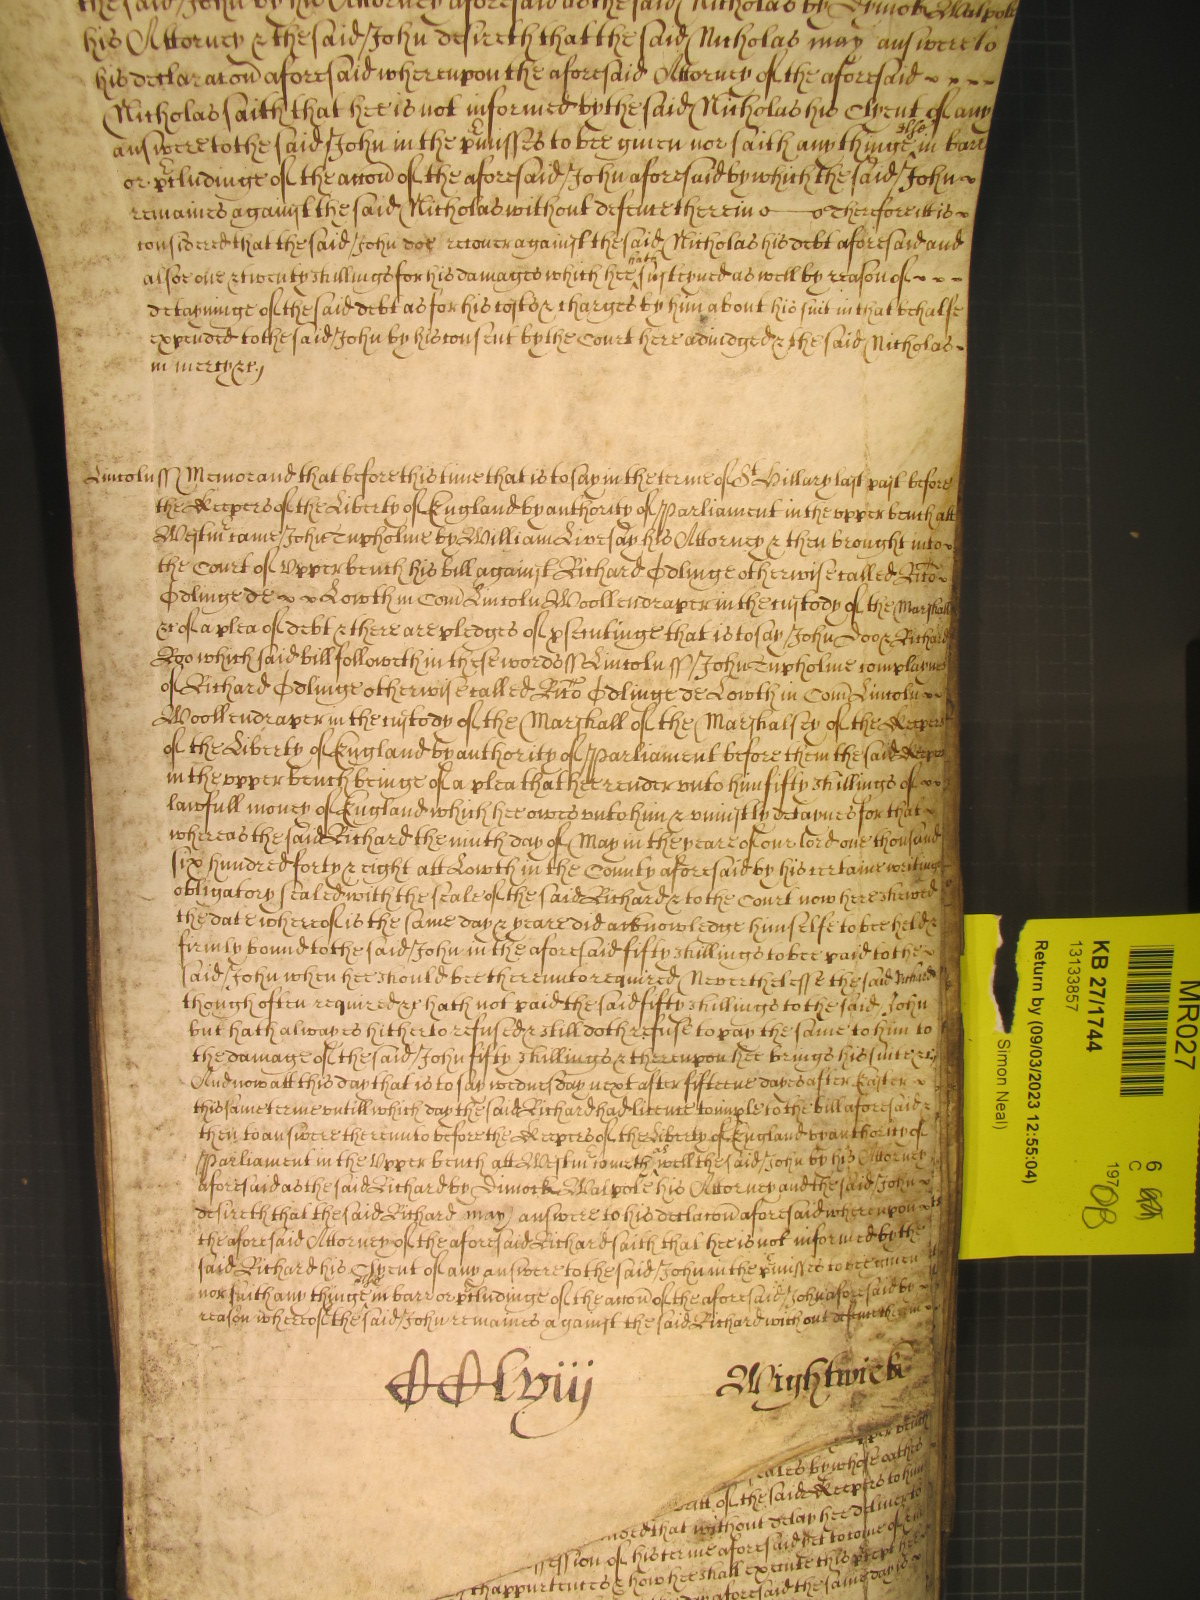 the said John by his Attorney aforesaid as the said Nicholas by Dymock Walpole
his Attorney & the said John desireth that the said Nicholas may answere to
his declaracon aforesaid whereupon the aforesaid Attorney of the aforesaid
Nicholas saith that hee is not informed by the said Nicholas his Clyent of any
answere to the said John in the pmisses to bee given nor saith any thinge else in barr
or pcludinge of the accon of the aforesaid John aforesaid by which the said John
remaines against the said Nicholas without defence therein Therefore it is
considered that the said John doe recover against the said Nicholas his debt aforesaid and
alsoe one & twenty shillings for his damages which hee hath susteyned as well by reason of
detayninge of the said debt as for his costs & charges by him about his suit in that behalfe
expended to the said John by his consent by the Court here adiudged & the said Nicholas
in mercy &c
Lincoln ss Memorand that before this time that is to say in the terme of St Hillary last past before
the Keepers of the Liberty of England by authority of Parliament in the upper bench att
Westm came John Tupholme by William Livesay his Attorney & then brought into
the Court of Upper bench his bill against Richard Odlinge otherwise called Rico
Odlinge de Lowth in Com Lincoln Woollendraper in the custody of the Marshall
&c of a plea of debt & there are pledges of psecutinge that is to say John Doo & Richard
Roo which said bill followeth in these words ss Lincoln ss John Tupholme complaynes
of Richard Odlinge otherwise called Rico Odlinge de Lowth in Com Lincoln
Woollendraper in the custody of the Marshall of the Marshalsey of the Keepers
of the Liberty of England by authority of Parliament before them the said Keepers
in the upper bench beinge of a plea that hee render unto him fifty shillings of
lawfull money of England which hee owes unto him & uniustly detaynes for that
whereas the said Richard the ninth day of May in the yeare of our lord one thousand
six hundred forty & eight att Lowth in the County aforesaid by his certaine writinge
obligatory sealed with the seale of the said Richard & to the Court now here shewed
the date whereof is the same day & yeare did acknowledge himselfe to bee held &
firmly bound to the said John in the aforesaid fifty shillings to bee paid to the
said John when hee should bee thereunto required Neverthelesse the said Richard
though often required &c hath not paid the said fifty shillings to the said John
but hath alwayes hitherto refused & still doth refuse to pay the same to him to
the damage of the said John fifty shillings & thereupon hee brings his suite &c
And now att this day that is to say wednesday next after fifteene dayes after Easter
this same terme untill which day the said Richard had licence to imple to the bill aforesaid &
then to answere thereunto before the Keepers of the Liberty of England by authority of
Parliament in the Upper bench att Westm cometh as well the said John by his Attorney
aforesaid as the said Richard by Dimock Walpole his Attorney and the said John
desireth that the said Richard may answere to his declacon aforesaid whereupon
the aforesaid Attorney of the aforesaid Richard saith that hee is not informed by the
said Richard his Clyent of any answere to the said John in the pmisses to bee given
nor saith any thinge else in barr or pcludinge of the accon of the aforesaid John aforesaid by
reason whereof the said John remaines against the said Richard without defence therein
CCLviij Wightwick
upper bench
by whose oathes
att of the said Keepers to him
that without delay hee deliver to
session of his terme aforesaid yet to come of
th appurtences & how hee shall execute this pcept
day aforesaid the same day is
MR027
6
C
197
KB 27/1744
13133857
Return by (09/03/2023 12:55:04)
Simon Neal)